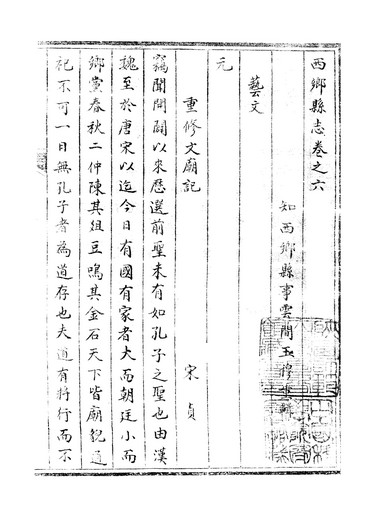 西鄉縣志卷之六
知西鄉縣事雲間王穆輯
藝文
元
重修文廟記 宋貞
竊聞開闢以來歷選前聖未有如孔子之聖也由漢
魏至於唐宋以迄今日有國有家者大而朝廷小而
鄉黨春秋二仲陳其俎豆鳴其金石天下皆廟貌通
祀不可一日無孔子者為道存也夫道有將行而不